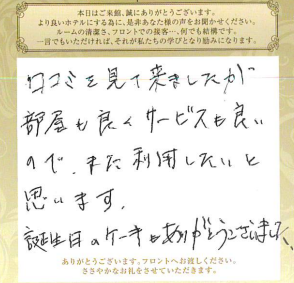 本日はご来館、誠にありがとうございます。
より良いホテルにする為に、是非あなた様の声をお聞かせください。
ルームの清潔さ、フロントでの接客…、何でも結構です。
一言でもいただければ、それが私たちの学びとなり励みになります。
口コミを見て来ましたが
部屋も良くサービスも良い
ので、また利用したいと
思います。
誕生日のケーキもありがとうございました。
ありがとうございます。フロントへお渡しください。
ささやかなお礼をさせていただきます。